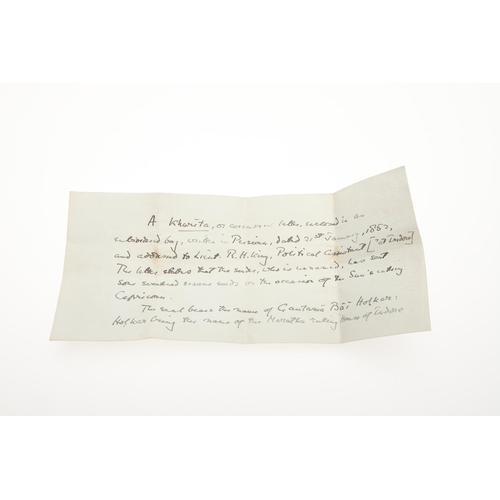 A Kharita, or ceremonial letter, enclosed in an
embroidered bag, written in Persian, dated 21st January, 1862,
and addressed to Lieut. R. H. Key, Political Assistant [at Indore]
The letter states that the sender, who is unnamed, has sent
some seasonal on the occasion of the Sun's entering
Capricorn.
The seal bears the name of Gautama Bāī Holkar:
Holkar being the name of the Maratha ruling House of Indore